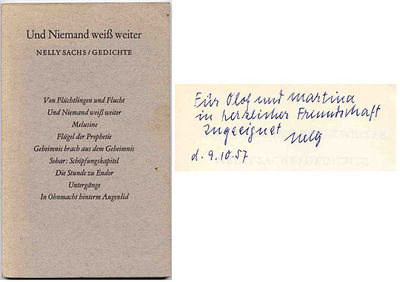 Und Niemand weiß weiter
NELLY SACHS / GEDICHTE
Von Flüchtlingen und Flucht
Und Niemand weiß weiter
Melusine
Flügel der Prophetie
Geheimnis brach aus dem Geheimnis
Sohar: Schöpfungskapitel
Die Stunde zu Endor
Untergänge
In Ohnmacht hinterm Augenlid
Für Olof und Martina
in herzlicher Freundschaft
zugeeignet Nelly
d. 9.10.57